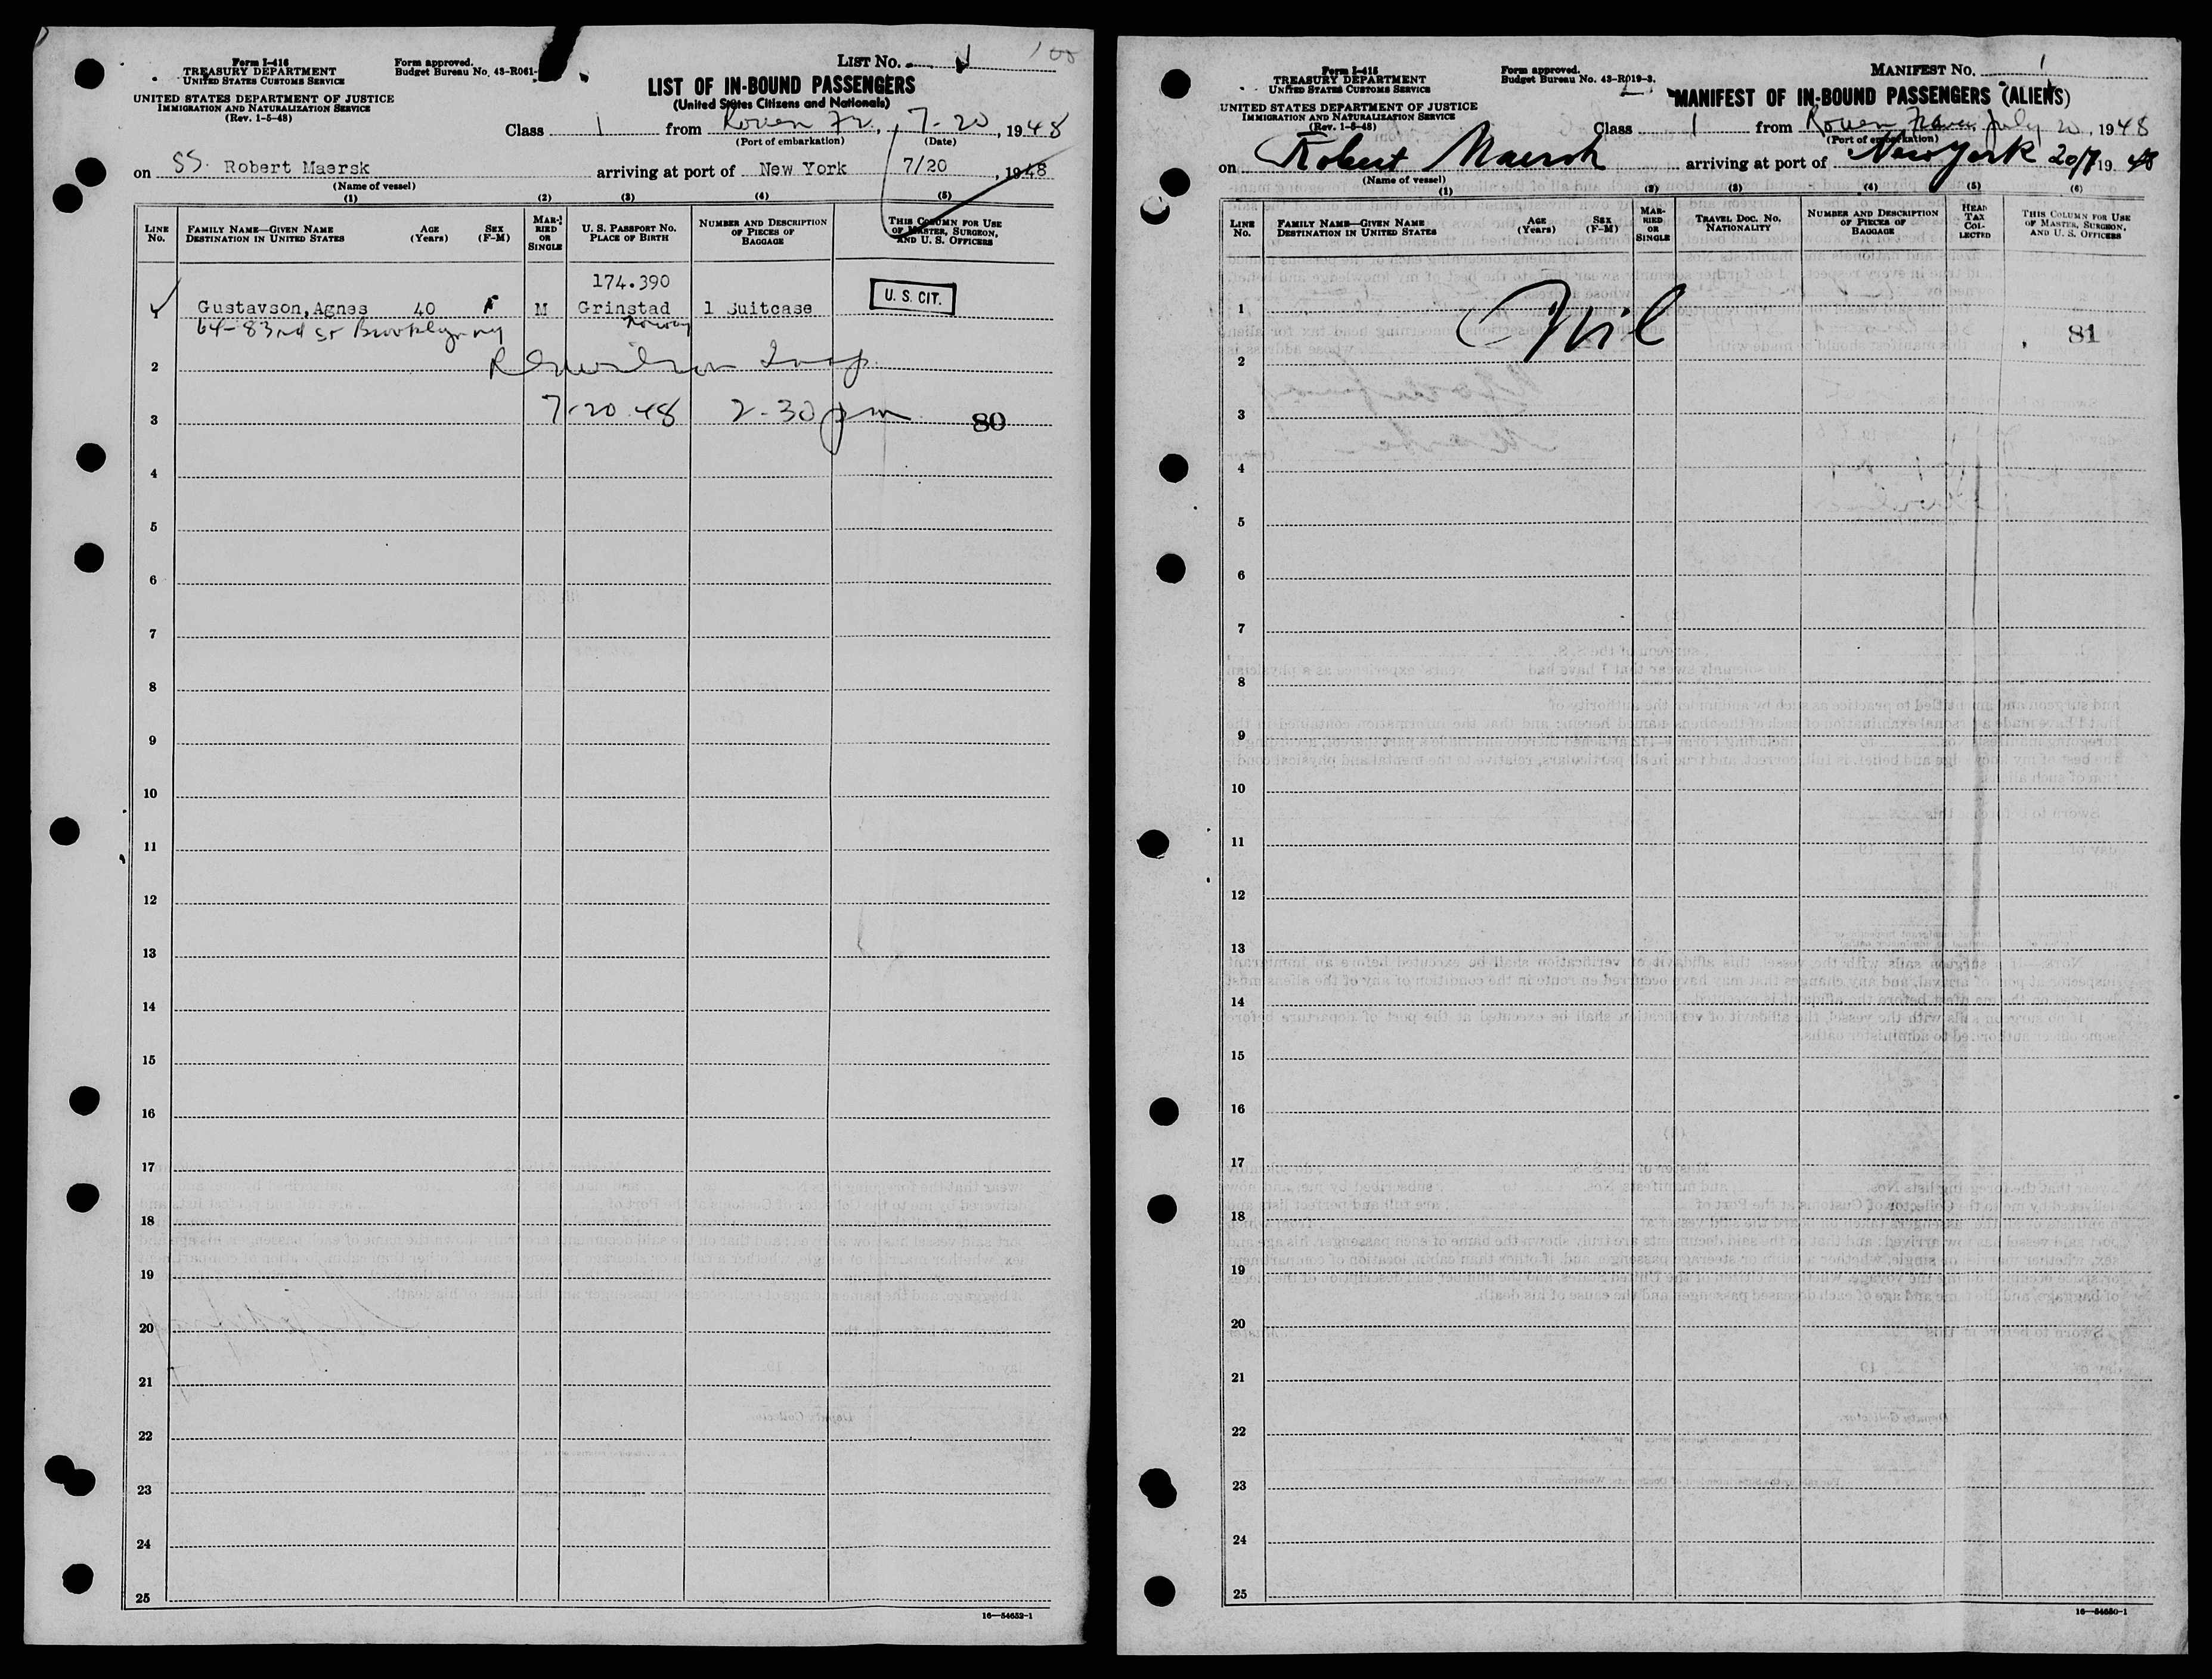 Form I-416
TREASURY DEPARTMENT
UNITED STATES CUSTOMS SERVICE
UNITED STATES DEPARTMENT OF JUSTICE
IMMIGRATION AND NATURALIZATION SERVICE
(Rev. 1-5-48)
Form approved.
Budget Bureau No. 43-R061-
LIST No. 1
100
LIST OF IN-BOUND PASSENGERS
(United States Citizens and Nationals)
Class 1 from Rouen Fr., 7-20, 1948
(Port of embarkation) (Date)
on SS. Robert Maersk arriving at port of New York 7/20, 1948
(Name of vessel)
(1) (2) (3) (4) (5)
LINE No.
FAMILY NAME—GIVEN NAME
DESTINATION IN UNITED STATES
AGE (Years)
SEX (F-M)
MARRIED OR SINGLE
U. S. PASSPORT No.
PLACE OF BIRTH
NUMBER AND DESCRIPTION OF PIECES OF BAGGAGE
THIS COLUMN FOR USE OF MASTER, SURGEON, AND U. S. OFFICERS
174.390
1 Gustavson, Agnes 40 F M Grinstad 1 Suitcase U. S. CIT.
64-83rd St Brooklyn ny Norway
2 Insp.
7-20-48 2-30 pm
3 80
4
5
6
7
8
9
10
11
12
13
14
15
16
17
18
19
20
21
22
23
24
25
16—54652-1
Form I-415
TREASURY DEPARTMENT
UNITED STATES CUSTOMS SERVICE
UNITED STATES DEPARTMENT OF JUSTICE
IMMIGRATION AND NATURALIZATION SERVICE
(Rev. 1-5-48)
Form approved.
Budget Bureau No. 43-R019-3.
MANIFEST No. 1
MANIFEST OF IN-BOUND PASSENGERS (ALIENS)
Class 1 from Rouen France, July 20, 1948
(Port of embarkation)
on Robert Maersk arriving at port of New York 20/7 19 48
(Name of vessel)
(1) (2) (3) (4) (5) (6)
LINE No.
FAMILY NAME—GIVEN NAME
DESTINATION IN UNITED STATES
AGE (Years)
SEX (F-M)
MARRIED OR SINGLE
TRAVEL DOC. No.
NATIONALITY
NUMBER AND DESCRIPTION OF PIECES OF BAGGAGE
HEAD TAX COLLECTED
THIS COLUMN FOR USE OF MASTER, SURGEON, AND U. S. OFFICERS
1 Nil
81
2
3
4
5
6
7
8
9
10
11
12
13
14
15
16
17
18
19
20
21
22
23
24
25
16—54650-1